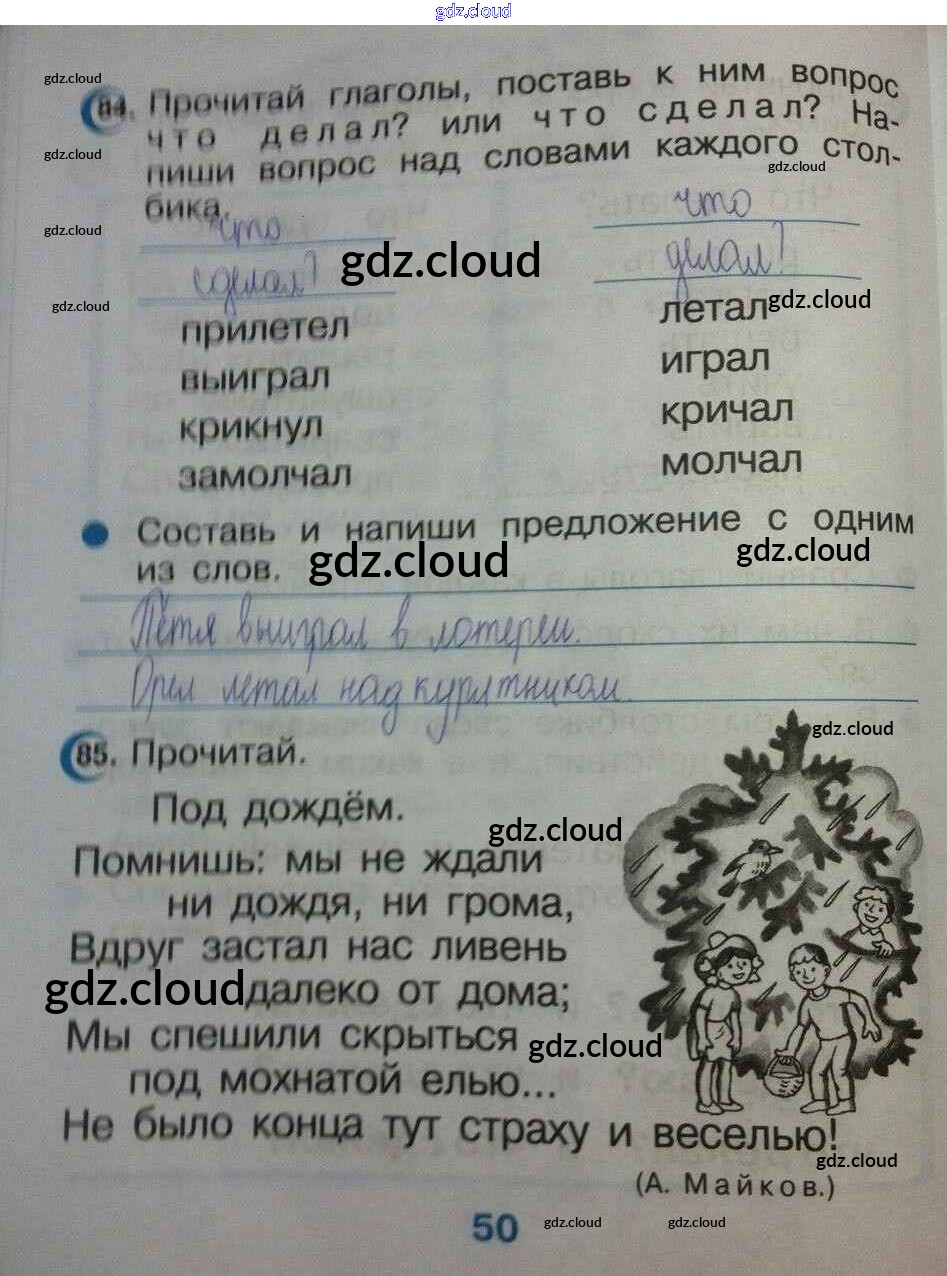 gdz.cloud
gdz.cloud
84. Прочитай глаголы, поставь к ним вопрос
что делал? или что сделал? На-
gdz.cloud
пиши вопрос над словами каждого стол-
gdz.cloud
бика.
что что
gdz.cloud
сделал? gdz.cloud делал?
gdz.cloud gdz.cloud
прилетел летал
выиграл играл
крикнул кричал
замолчал молчал
Составь и напиши предложение с одним
из слов. gdz.cloud gdz.cloud
Петя выиграл в лотереи.
Орел летал над курятником.
gdz.cloud
85. Прочитай.
Под дождём.
gdz.cloud
Помнишь: мы не ждали
ни дождя, ни грома,
Вдруг застал нас ливень
gdz.cloud далеко от дома;
Мы спешили скрыться
gdz.cloud
под мохнатой елью...
Не было конца тут страху и веселью!
gdz.cloud
(А. Майков.)
50 gdz.cloud gdz.cloud